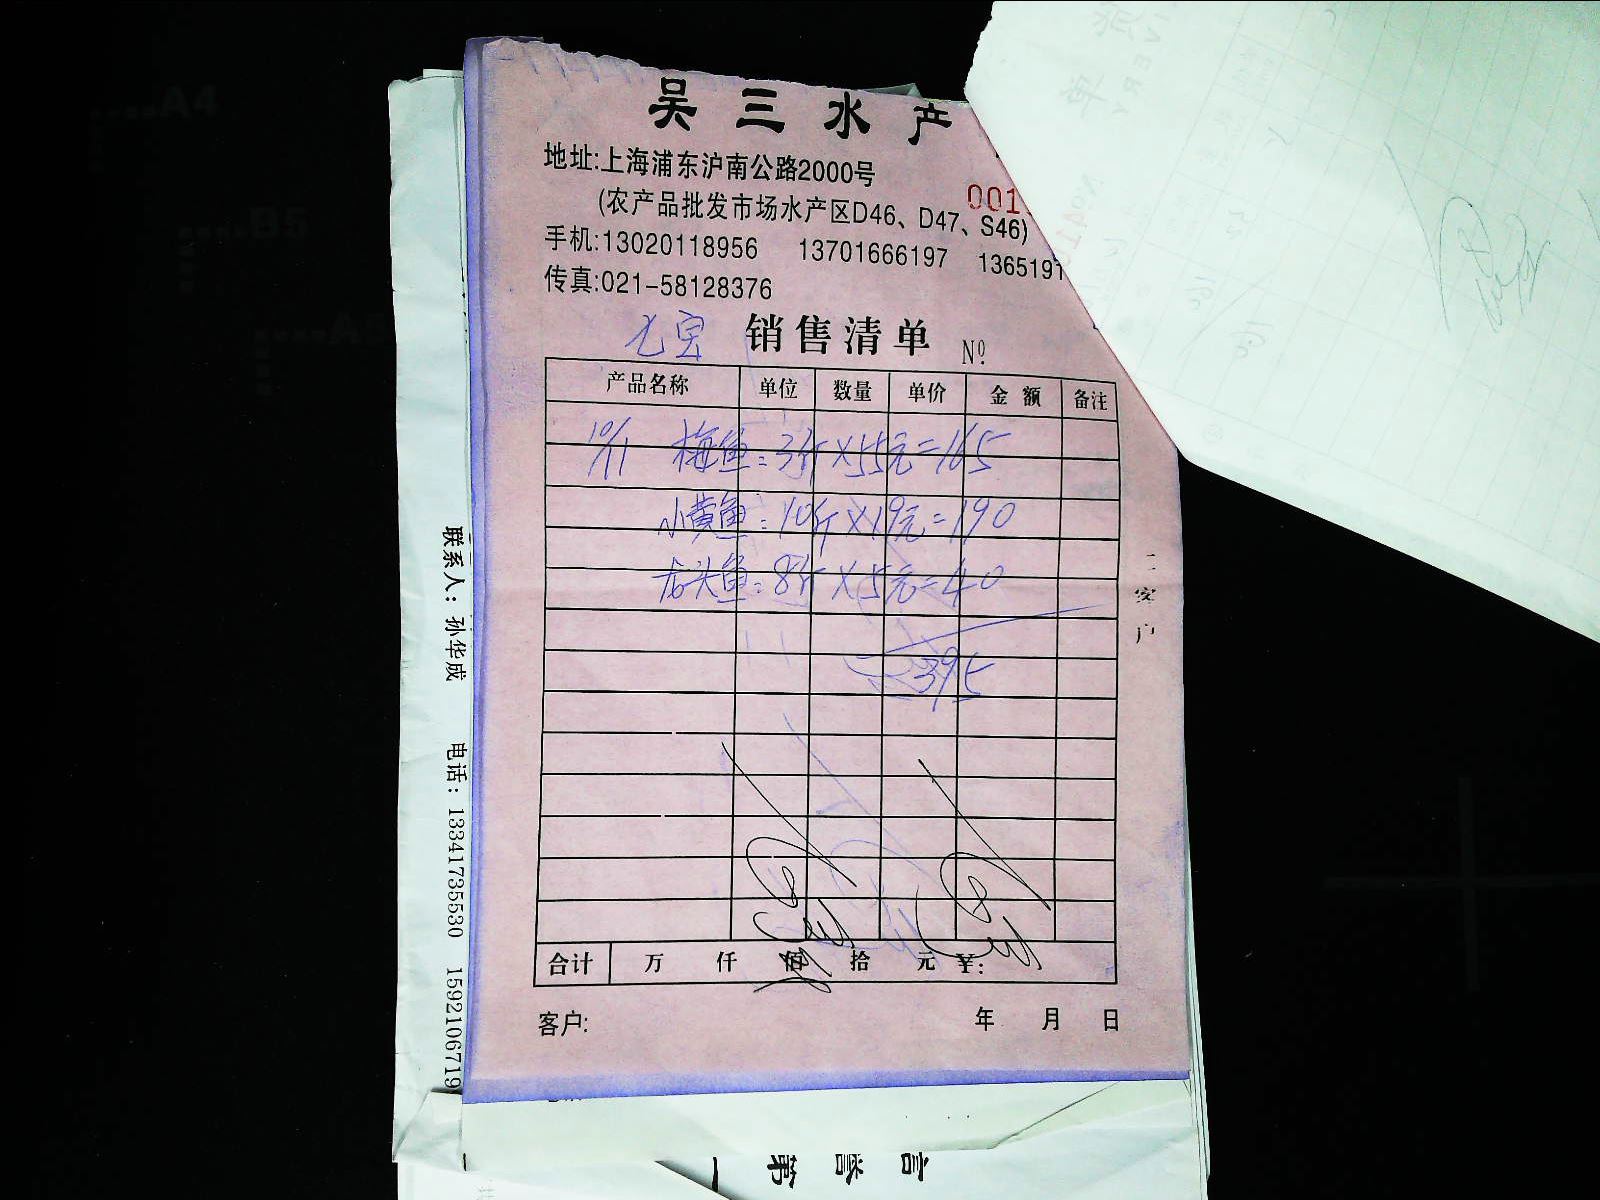 吴三水产
地址:上海浦东沪南公路2000号
(农产品批发市场水产区D46、D47、S46)
001
手机:13020118956 13701666197 1365191
传真:021-58128376
七宝 销售清单 №
产品名称 单位 数量 单价 金额 备注
10/11 梅鱼:3斤×55元=165
小黄鱼:10斤×19元=190
龙头鱼:8斤×5元=40
395
二客户
合计 万 仟 佰 拾 元 ¥:
客户: 年 月 日
联系人:孙华成 电话:13341735530 1592106719
A4
B5
A5